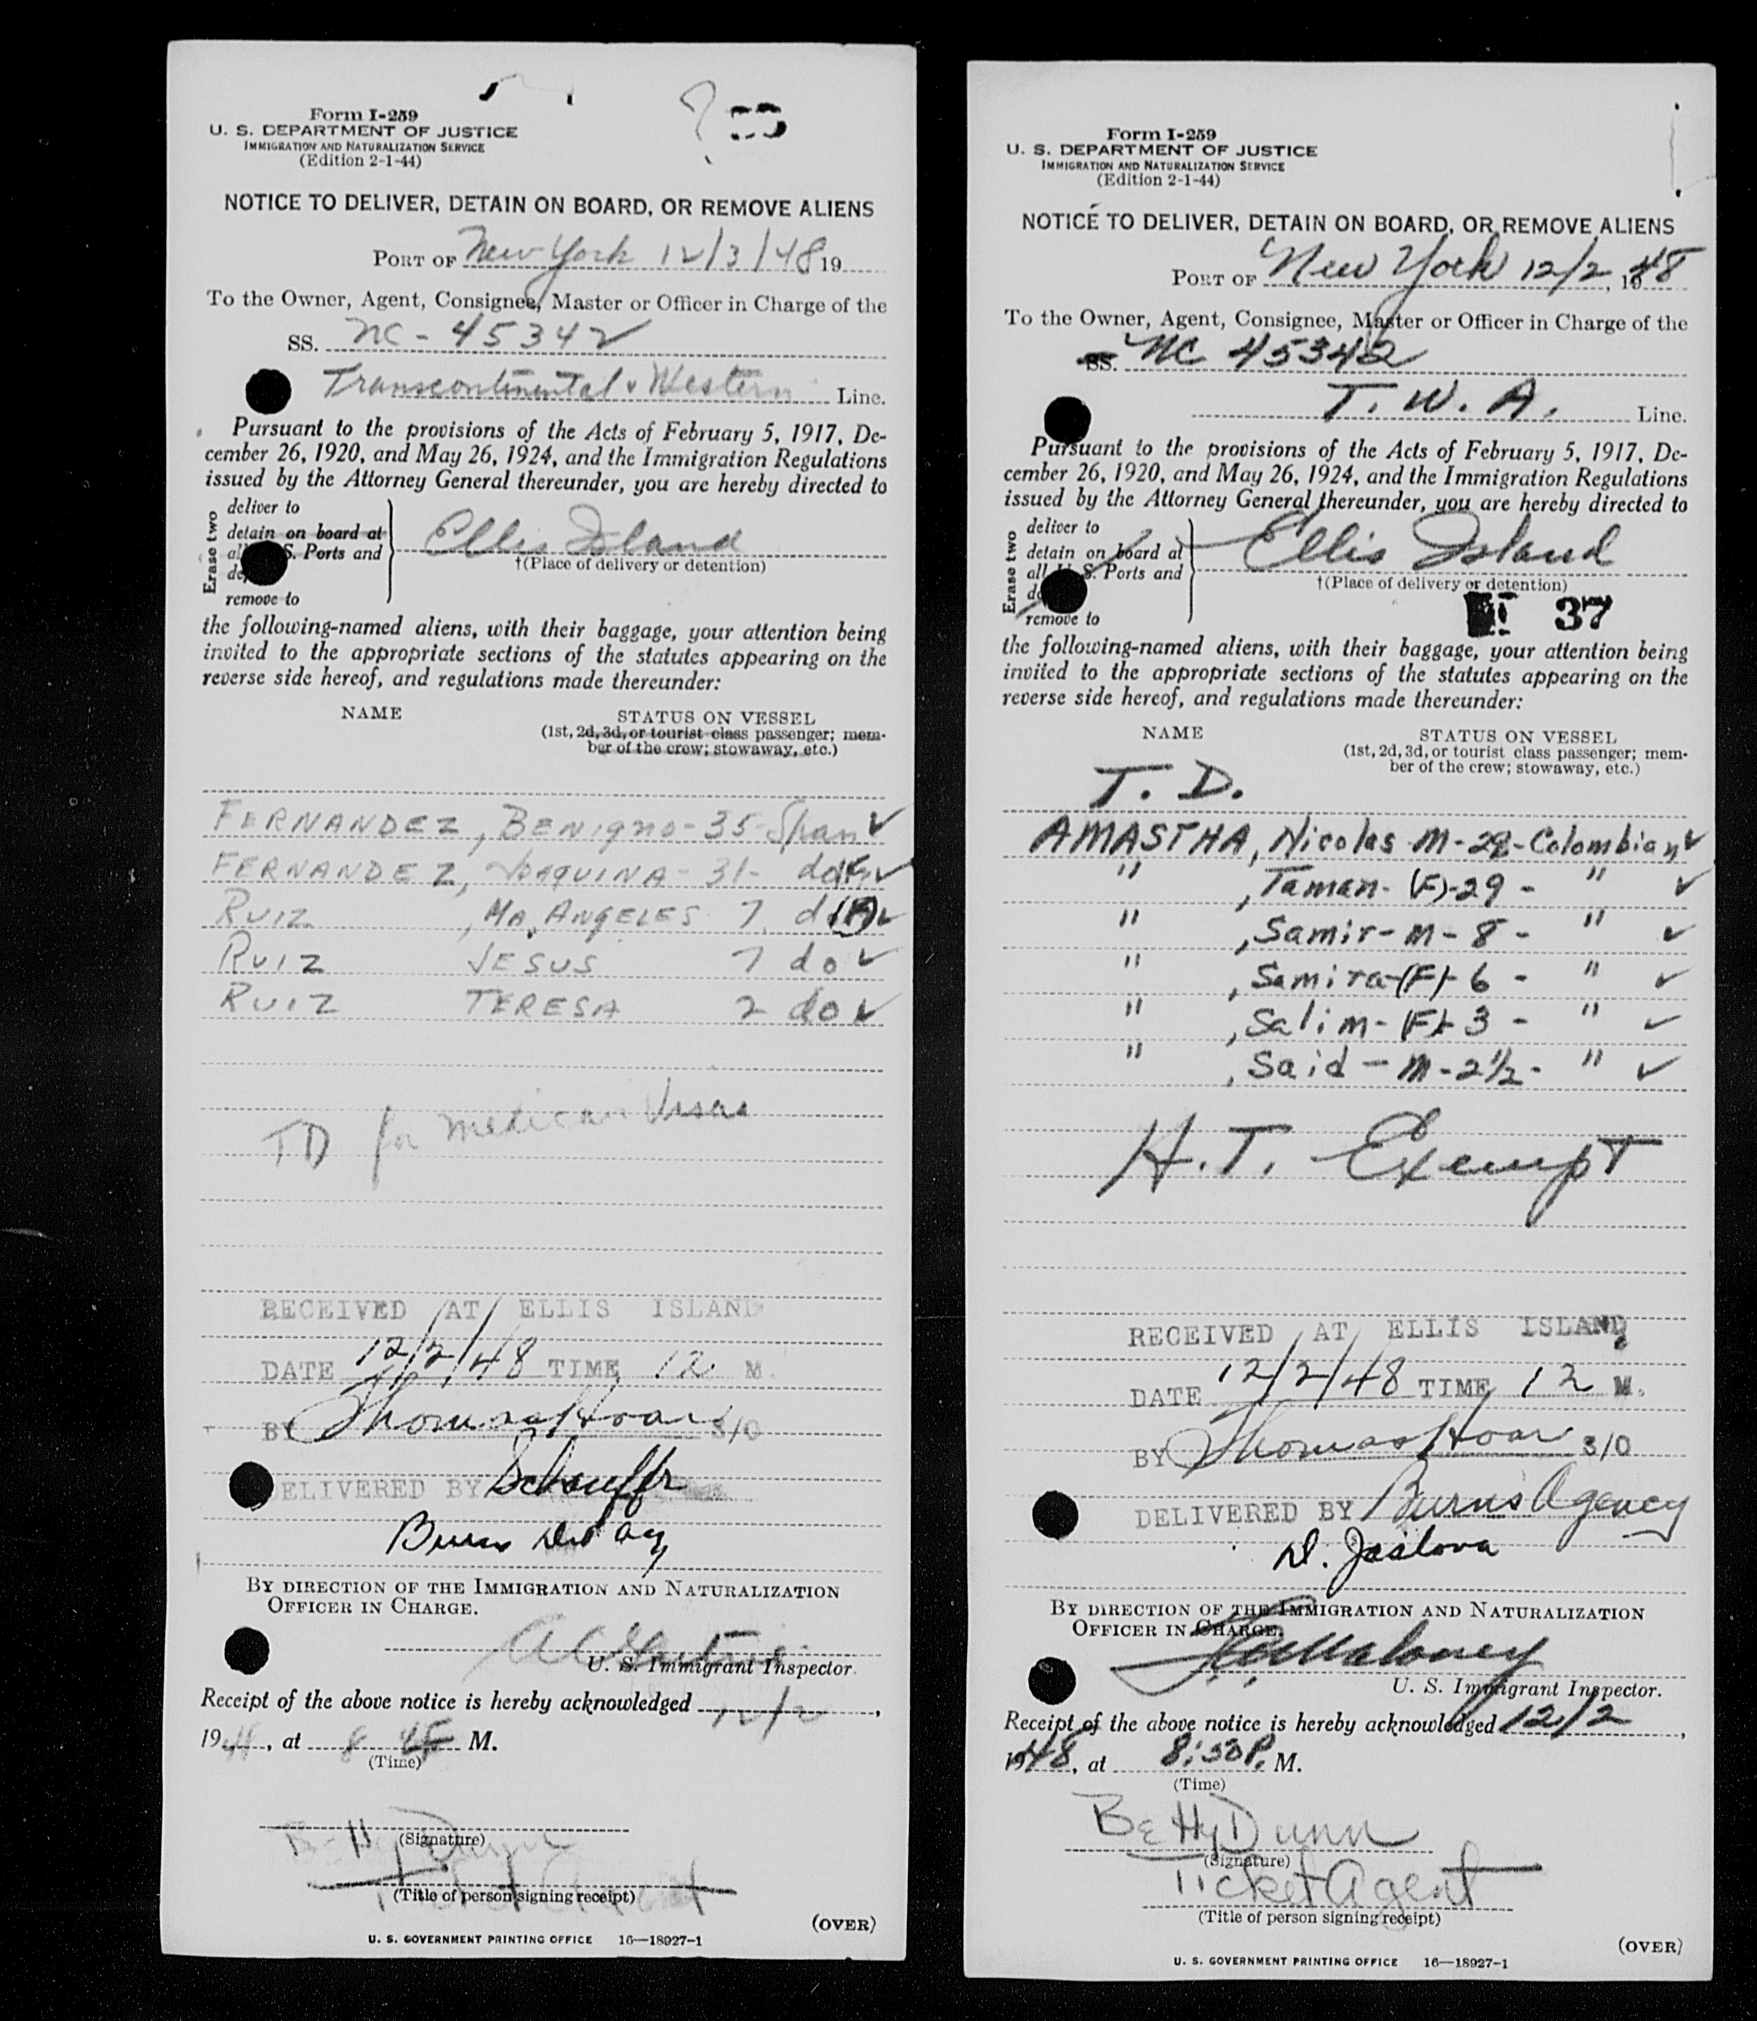 Form I-259
U. S. DEPARTMENT OF JUSTICE
IMMIGRATION AND NATURALIZATION SERVICE
(Edition 2-1-44)
NOTICE TO DELIVER, DETAIN ON BOARD, OR REMOVE ALIENS
PORT OF New York 12/3/48 19
To the Owner, Agent, Consignee, Master or Officer in Charge of the
SS. NC-45342
Transcontinental & Western Line.
Pursuant to the provisions of the Acts of February 5, 1917, De-
cember 26, 1920, and May 26, 1924, and the Immigration Regulations
issued by the Attorney General thereunder, you are hereby directed to
Erase two
deliver to
detain on board at
S. Ports and
remove to
Ellis Island
†(Place of delivery or detention)
the following-named aliens, with their baggage, your attention being
invited to the appropriate sections of the statutes appearing on the
reverse side hereof, and regulations made thereunder:
NAME
STATUS ON VESSEL
(1st, 2d, 3d, or tourist class passenger; mem-
ber of the crew; stowaway, etc.)
FERNANDEZ, BENigno - 35 - Span ✓
FERNANDEZ, JOAQUINA - 31 - do (F) ✓
RUIZ, MA. ANGELES 7 do (F) ✓
RUIZ JESUS 7 do ✓
RUIZ TERESA 2 do ✓
TD for Mexican Visas
RECEIVED AT ELLIS ISLAND
DATE 12/2/48 TIME 12 M.
BY Thomas Hoar S/O
DELIVERED BY
Burns Det Agy
BY DIRECTION OF THE IMMIGRATION AND NATURALIZATION
OFFICER IN CHARGE.
U. S. Immigrant Inspector.
Receipt of the above notice is hereby acknowledged 12/2,
1948, at 8 45 M.
(Time)
Betty Dunn
(Signature)
Ticket Agent
(Title of person signing receipt)
(OVER)
U. S. GOVERNMENT PRINTING OFFICE 16—18927-1
Form I-259
U. S. DEPARTMENT OF JUSTICE
IMMIGRATION AND NATURALIZATION SERVICE
(Edition 2-1-44)
NOTICE TO DELIVER, DETAIN ON BOARD, OR REMOVE ALIENS
PORT OF New York 12/2, 1948
To the Owner, Agent, Consignee, Master or Officer in Charge of the
SS. NC 45342
T. W. A. Line.
Pursuant to the provisions of the Acts of February 5, 1917, De-
cember 26, 1920, and May 26, 1924, and the Immigration Regulations
issued by the Attorney General thereunder, you are hereby directed to
Erase two
deliver to
detain on board at
all U. S. Ports and
remove to
Ellis Island
†(Place of delivery or detention)
37
the following-named aliens, with their baggage, your attention being
invited to the appropriate sections of the statutes appearing on the
reverse side hereof, and regulations made thereunder:
NAME
STATUS ON VESSEL
(1st, 2d, 3d, or tourist class passenger; mem-
ber of the crew; stowaway, etc.)
T. D.
AMASTHA, Nicolas M - 28 - Colombian ✓
" , Taman - (F) - 29 - " ✓
" , Samir - M - 8 - " ✓
" , Samira - (F) - 6 - " ✓
" , Salim - (F) - 3 - " ✓
" , Said - M - 2½ - " ✓
H. T. Exempt
RECEIVED AT ELLIS ISLAND
DATE 12/2/48 TIME 12 M.
BY Thomas Hoar S/O
DELIVERED BY Burns Agency
BY DIRECTION OF THE IMMIGRATION AND NATURALIZATION
OFFICER IN CHARGE.
Maloney
U. S. Immigrant Inspector.
Receipt of the above notice is hereby acknowledged 12/2,
1948, at 8:50 P. M.
(Time)
Betty Dunn
(Signature)
Ticket Agent
(Title of person signing receipt)
(OVER)
U. S. GOVERNMENT PRINTING OFFICE 16—18927-1